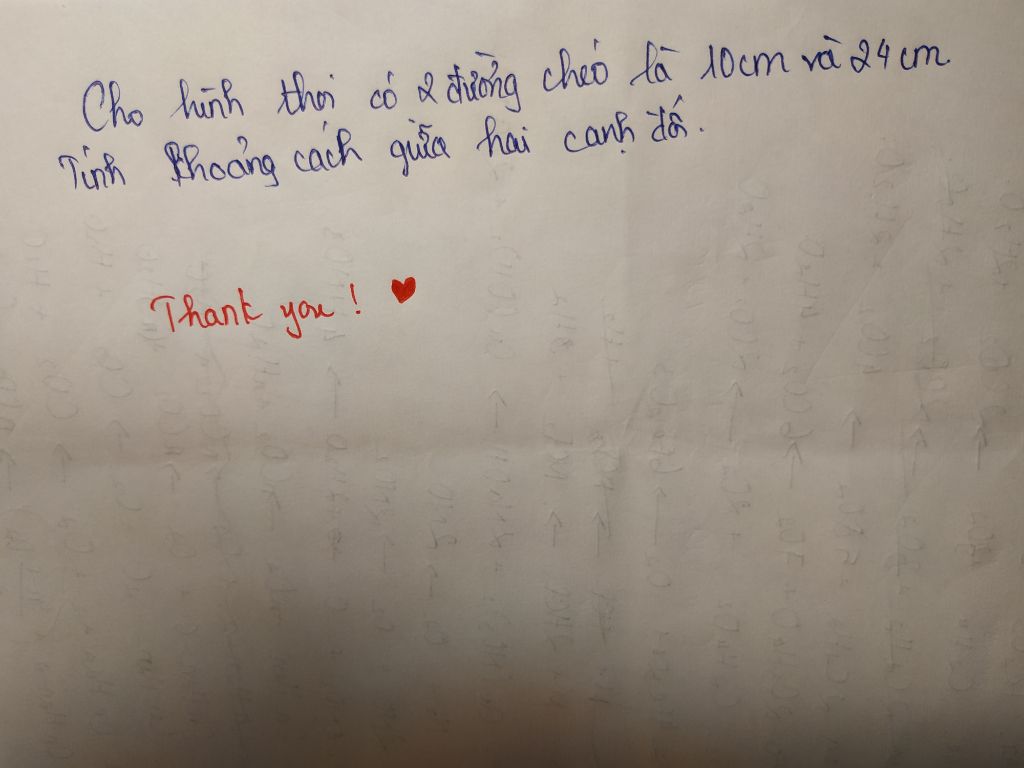 Cho hình thoi có 2 đường chéo là 10cm và 24cm.
Tính khoảng cách giữa hai cạnh đối.
Thank you! ♥